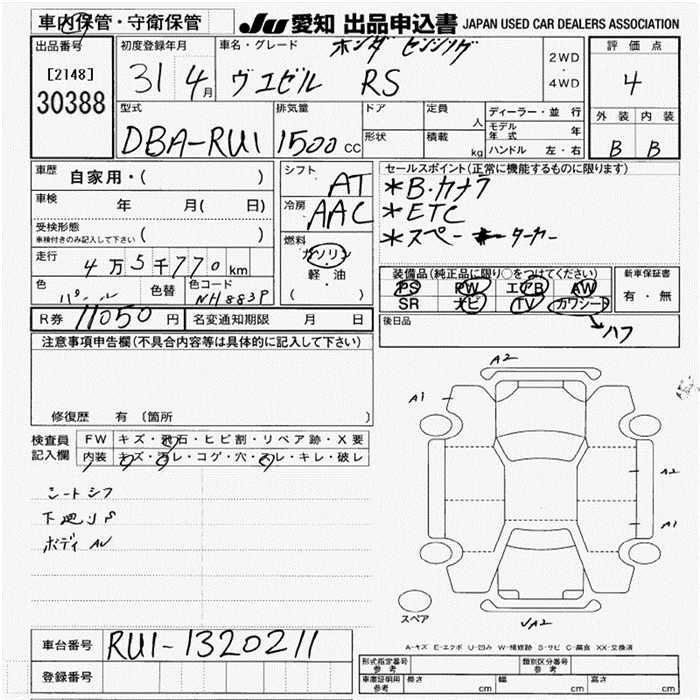 車内保管・守衛保管
JU 愛知 出品申込書 JAPAN USED CAR DEALERS ASSOCIATION
出品番号
[2148]
30388
初度登録年月
31 4月
車名・グレード
ホンダ センシング
ヴェゼル RS
2WD
・
4WD
評価点
4
外装 内装
B B
型式
DBA-RU1
排気量
1500 cc
ドア
形状
定員
人
積載
kg
ディーラー・並行
モデル年式 年
ハンドル 左・右
車歴
自家用・( )
車検
年 月( 日)
受検形態
車検付きのみ記入して下さい ( )
走行
4万5千770km
色
パール
色替
色コード
NH883P
シフト
AT
冷房
AAC
燃料
ガソリン
・
軽油
( )
セールスポイント(正常に機能するものに限ります)
*B・カメラ
*ETC
*スペーターキー
装備品(純正品に限り○をつけてください)
PS PW エアB AW
SR ナビ TV カワシート
ハフ
新車保証書
有・無
後日品
R券 11050円
名変通知期限 月 日
注意事項申告欄(不具合内容等は具体的に記入して下さい)
修復歴 有〔箇所
検査員
記入欄
FW キズ・飛石・ヒビ割・リペア跡・X要
内装 キズ・汚レ・コゲ・穴・スレ・キレ・破レ
シートシワ
下廻りS
ボディAU
A2
A1
A2
A1
スペア
A2
A-キズ E-エクボ U-凹み W-補修跡 S-サビ C-腐食 XX-交換済
車台番号
RU1-1320211
登録番号
形式指定番号
参考
類別区分番号
参考
車庫証明用
参考
長さ cm
幅 cm
高さ cm